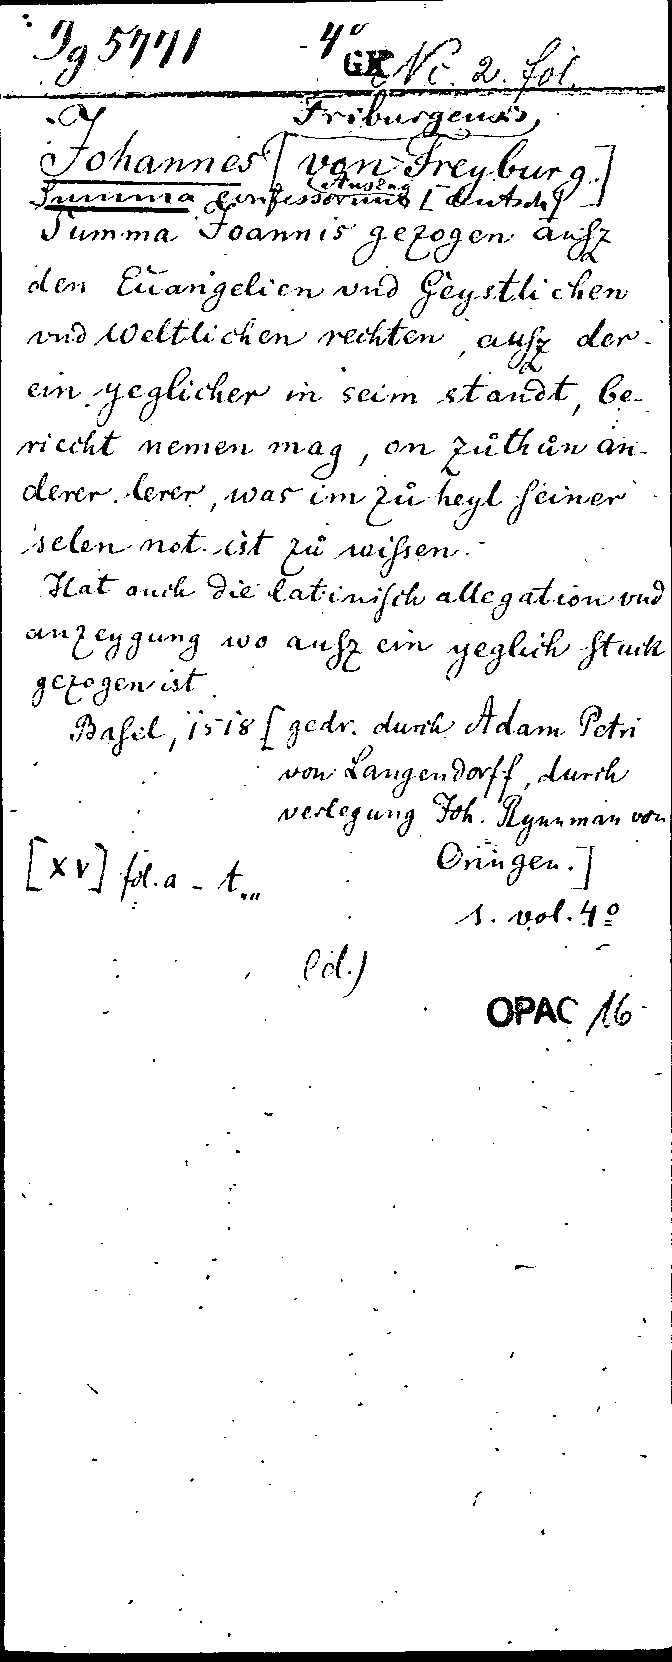 Ig 5771 4° GK Nc. 2. fol.
Friburgensis,
Johannes [von Freyburg.]
Summa confessorum [deutsch] Auszug
Summa Joannis gezogen ausz
den Euangelien vnd Geystlichen
vnd Weltlichen rechten, ausz der
ein yeglicher in seim standt, be-
riecht nemen mag, on zůthůn an-
derer lerer, was im zů heyl seiner
selen not ist zů wissen.
Hat auch die latinisch allegation vnd
anzeygung wo ausz ein yeglich stuck
gezogen ist.
Basel, 1518 [gedr. durch Adam Petri
von Langendorff, durch
verlegung Joh. Rynnman von
Öringen.]
[XV] fol. a - t
1. vol. 4°
(id.)
OPAC 16